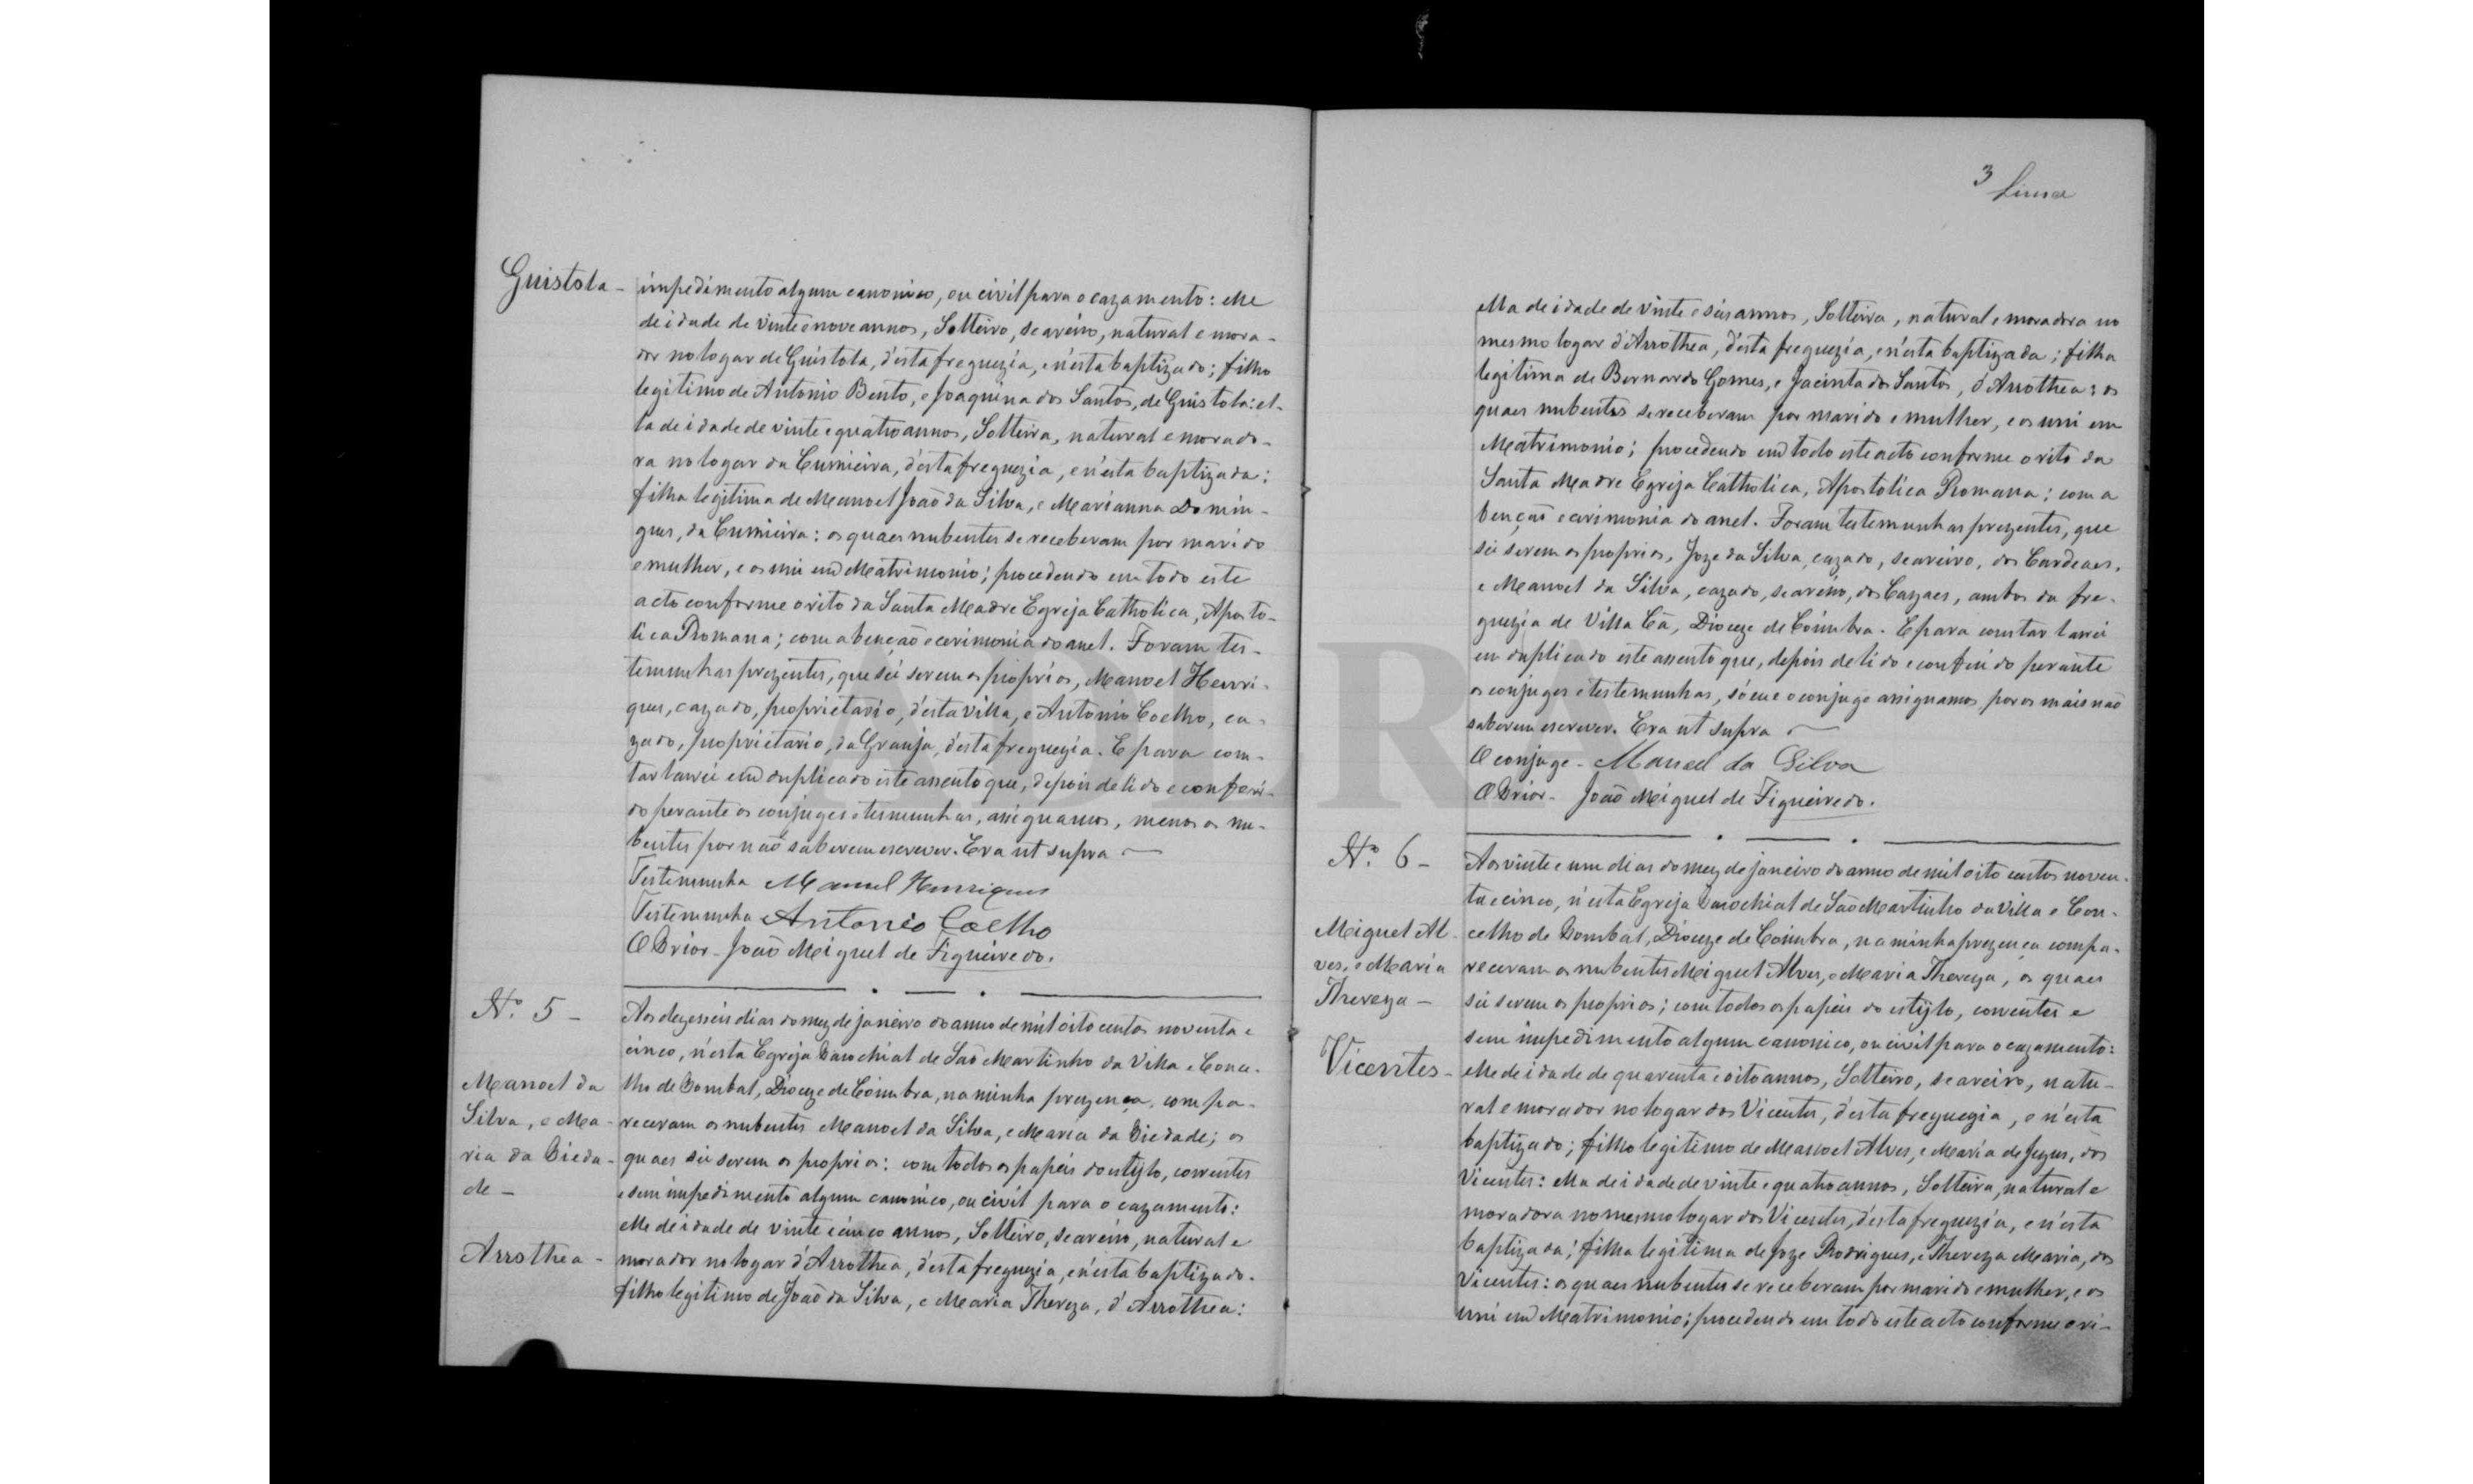 Guistola -
impedimento algum canonico, ou civil para o cazamento: elle
de idade de vinte e nove annos, Solteiro, seareiro, natural e mora-
dor no logar de Guistola, d'esta freguezia, e n'esta baptizado; filho
legitimo de Antonio Bento, e Joaquina dos Santos, de Guistola: el-
la de idade de vinte e quatro annos, Solteira, natural e morado-
ra no logar da Cumieira, d'esta freguezia, e n'esta baptizada:
filha legitima de Manoel João da Silva, e Marianna Domin-
gues, da Cumieira: os quaes nubentes se receberam por marido
e mulher, e os uni em Matrimonio; procedendo em todo este
acto conforme o rito da Santa Madre Egreja Catholica, Aposto-
lica Romana; com a benção e cerimonia do anel. Foram tes-
temunhas prezentes, que sei serem os proprios, Manoel Henri-
ques, cazado, proprietario, d'esta Villa, e Antonio Coelho, ca-
zado, proprietario, da Granja, d'esta freguezia. E para cons-
tar lavrei em duplicado este assento que, depois de lido e conferi-
do perante os conjuges e tesmunhas, assignamos, menos os nu-
bentes por não saberem escrever. Era ut supra
Testemunha Manuel Henriques
Testemunha Antonio Coelho
O Prior - João Miguel de Figueiredo.
Nº. 5 -
Manoel da
Silva, e Ma-
ria da Pieda-
de -
Arrothea -
Aos dezesseis dias do mez de janeiro do anno de mil oito centos noventa e
cinco, n'esta Egreja Parochial de São Martinho da Villa e Conce-
lho de Pombal, Dioceze de Coimbra, na minha prezença, compa-
receram os nubentes Manoel da Silva, e Maria da Piedade; os
quaes sei serem os proprios: com todos os papeis do estylo, correntes
e sem impedimento algum canonico, ou civil para o cazamento:
elle de idade de vinte e cinco annos, Solteiro, seareiro, natural e
morador no logar d'Arrothea, d'esta freguezia, e n'esta baptizado.
filho legitimo de João da Silva, e Maria Thereza, d'Arrothea:
3
ella de idade de vinte e seis annos, Solteira, natural e moradora no
mesmo logar d'Arrothea, d'esta freguezia, e n'esta baptizada; filha
legitima de Bernardo Gomes, e Jacinta dos Santos, d'Arrothea: os
quaes nubentes se receberam por marido e mulher, e os uni em
Matrimonio; procedendo em todo este acto conforme o rito da
Santa Madre Egreja Catholica, Apostolica Romana; com a
benção e cerimonia do anel. Foram testemunhas prezentes, que
sei serem os proprios, Joze da Silva, cazado, seareiro, dos Cardeaes,
e Manoel da Silva, cazado, seareiro, dos Cazaes, ambos da fre-
guezia de Villa Cã, Dioceze de Coimbra. E para constar lavrei
em duplicado este assento que, depois de lido e conferido perante
os conjuges e testemunhas, só eu e o conjuge assignamos, por os mais não
saberem escrever. Era ut supra
O conjuge - Manoel da Silva
O Prior - João Miguel de Figueiredo.
Nº. 6 -
Miguel Al-
ves, e Maria
Thereza -
Vicentes -
Aos vinte e um dias do mez de janeiro do anno de mil oito centos noven-
ta e cinco, n'esta Egreja Parochial de São Martinho da Villa e Con-
celho de Pombal, Dioceze de Coimbra, na minha prezença compa-
receram os nubentes Miguel Alves, e Maria Thereza, os quaes
sei serem os proprios; com todos os papeis do estylo, correntes e
sem impedimento algum canonico, ou civil para o cazamento:
elle de idade de quarenta e oito annos, Solteiro, seareiro, natu-
ral e morador no logar dos Vicentes, d'esta freguezia, e n'esta
baptizado; filho legitimo de Manoel Alves, e Maria de Jezus, dos
Vicentes: ella de idade de vinte e quatro annos, Solteira, natural e
moradora no mesmo logar dos Vicentes, d'esta freguezia, e n'esta
baptizada; filha legitima de Joze Rodrigues, e Thereza Maria, dos
Vicentes: os quaes nubentes se receberam por marido e mulher, e os
uni em Matrimonio; procedendo em todo este acto conforme o ri-